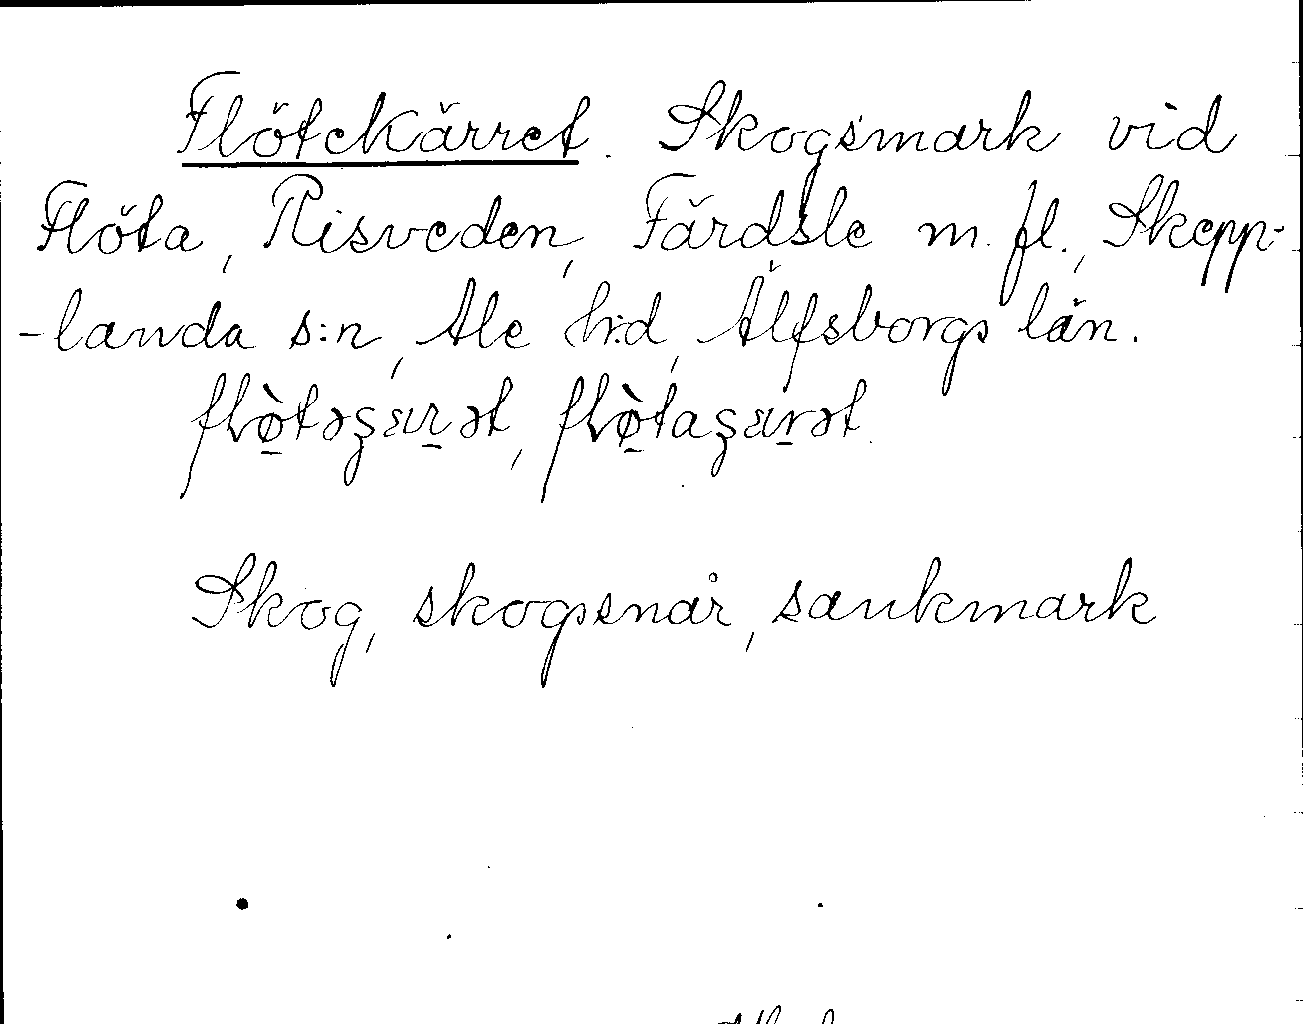 Flötekärret. Skogsmark vid
Flöta, Risveden, Färdsle m. fl., Skepp-
-landa s:n, Ale h:d, Älfsborgs län.
Skog, skogssnår, sankmark